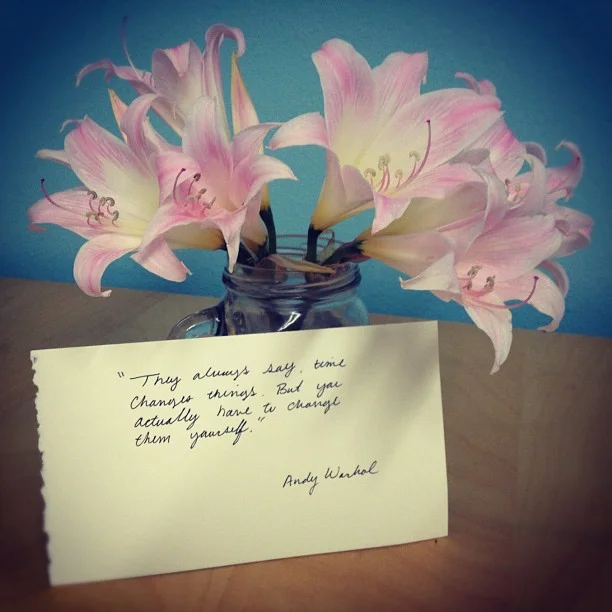 "They always say, time
changes things. But you
actually have to change
them yourself."
Andy Warhol